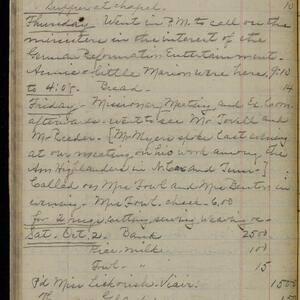 Supper at chapel. 10
Thursday - Went in P.M. to call on the
ministers in the interest of the
German Reformation Entertainment.
Annie & little Marion were here, 9:10
to 4:05. Bread. 14
Friday - Missionary Meeting and Ex. Com.
afterwards. Went to see Mr. and
Mr. Reeder. [Mr Myers spoke last evening
at our meeting on his work among the
Am Highlanders in N. Car and Tenn.]
Called on Mrs Fowl and Mrs Benton in
evening - Mrs Fowl, check - 6.00
for cutting, sewing
Sat. Oct. 2. Bank 2500
Rice, milk 100
Fowl - 15
P'd Miss 1500